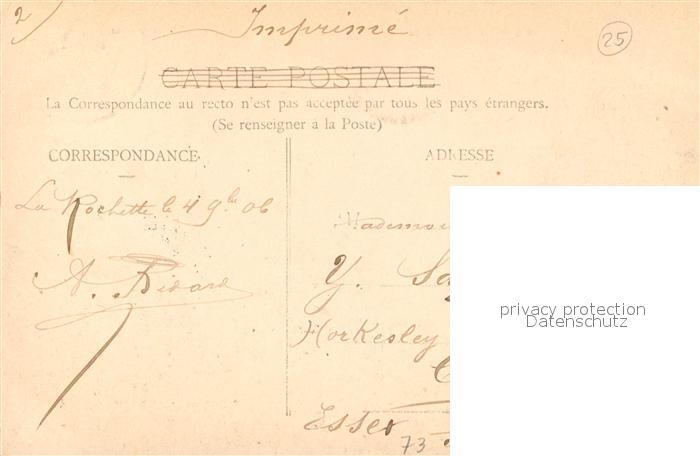 2
Imprimé
25
CARTE POSTALE
La Correspondance au recto n'est pas acceptée par tous les pays étrangers.
(Se renseigner à la Poste)
CORRESPONDANCE
ADRESSE
La Rochette le 4 9bre 06
A.
Mademoi
Y. Sa
privacy protection
Datenschutz
Horkesley
Essex
73